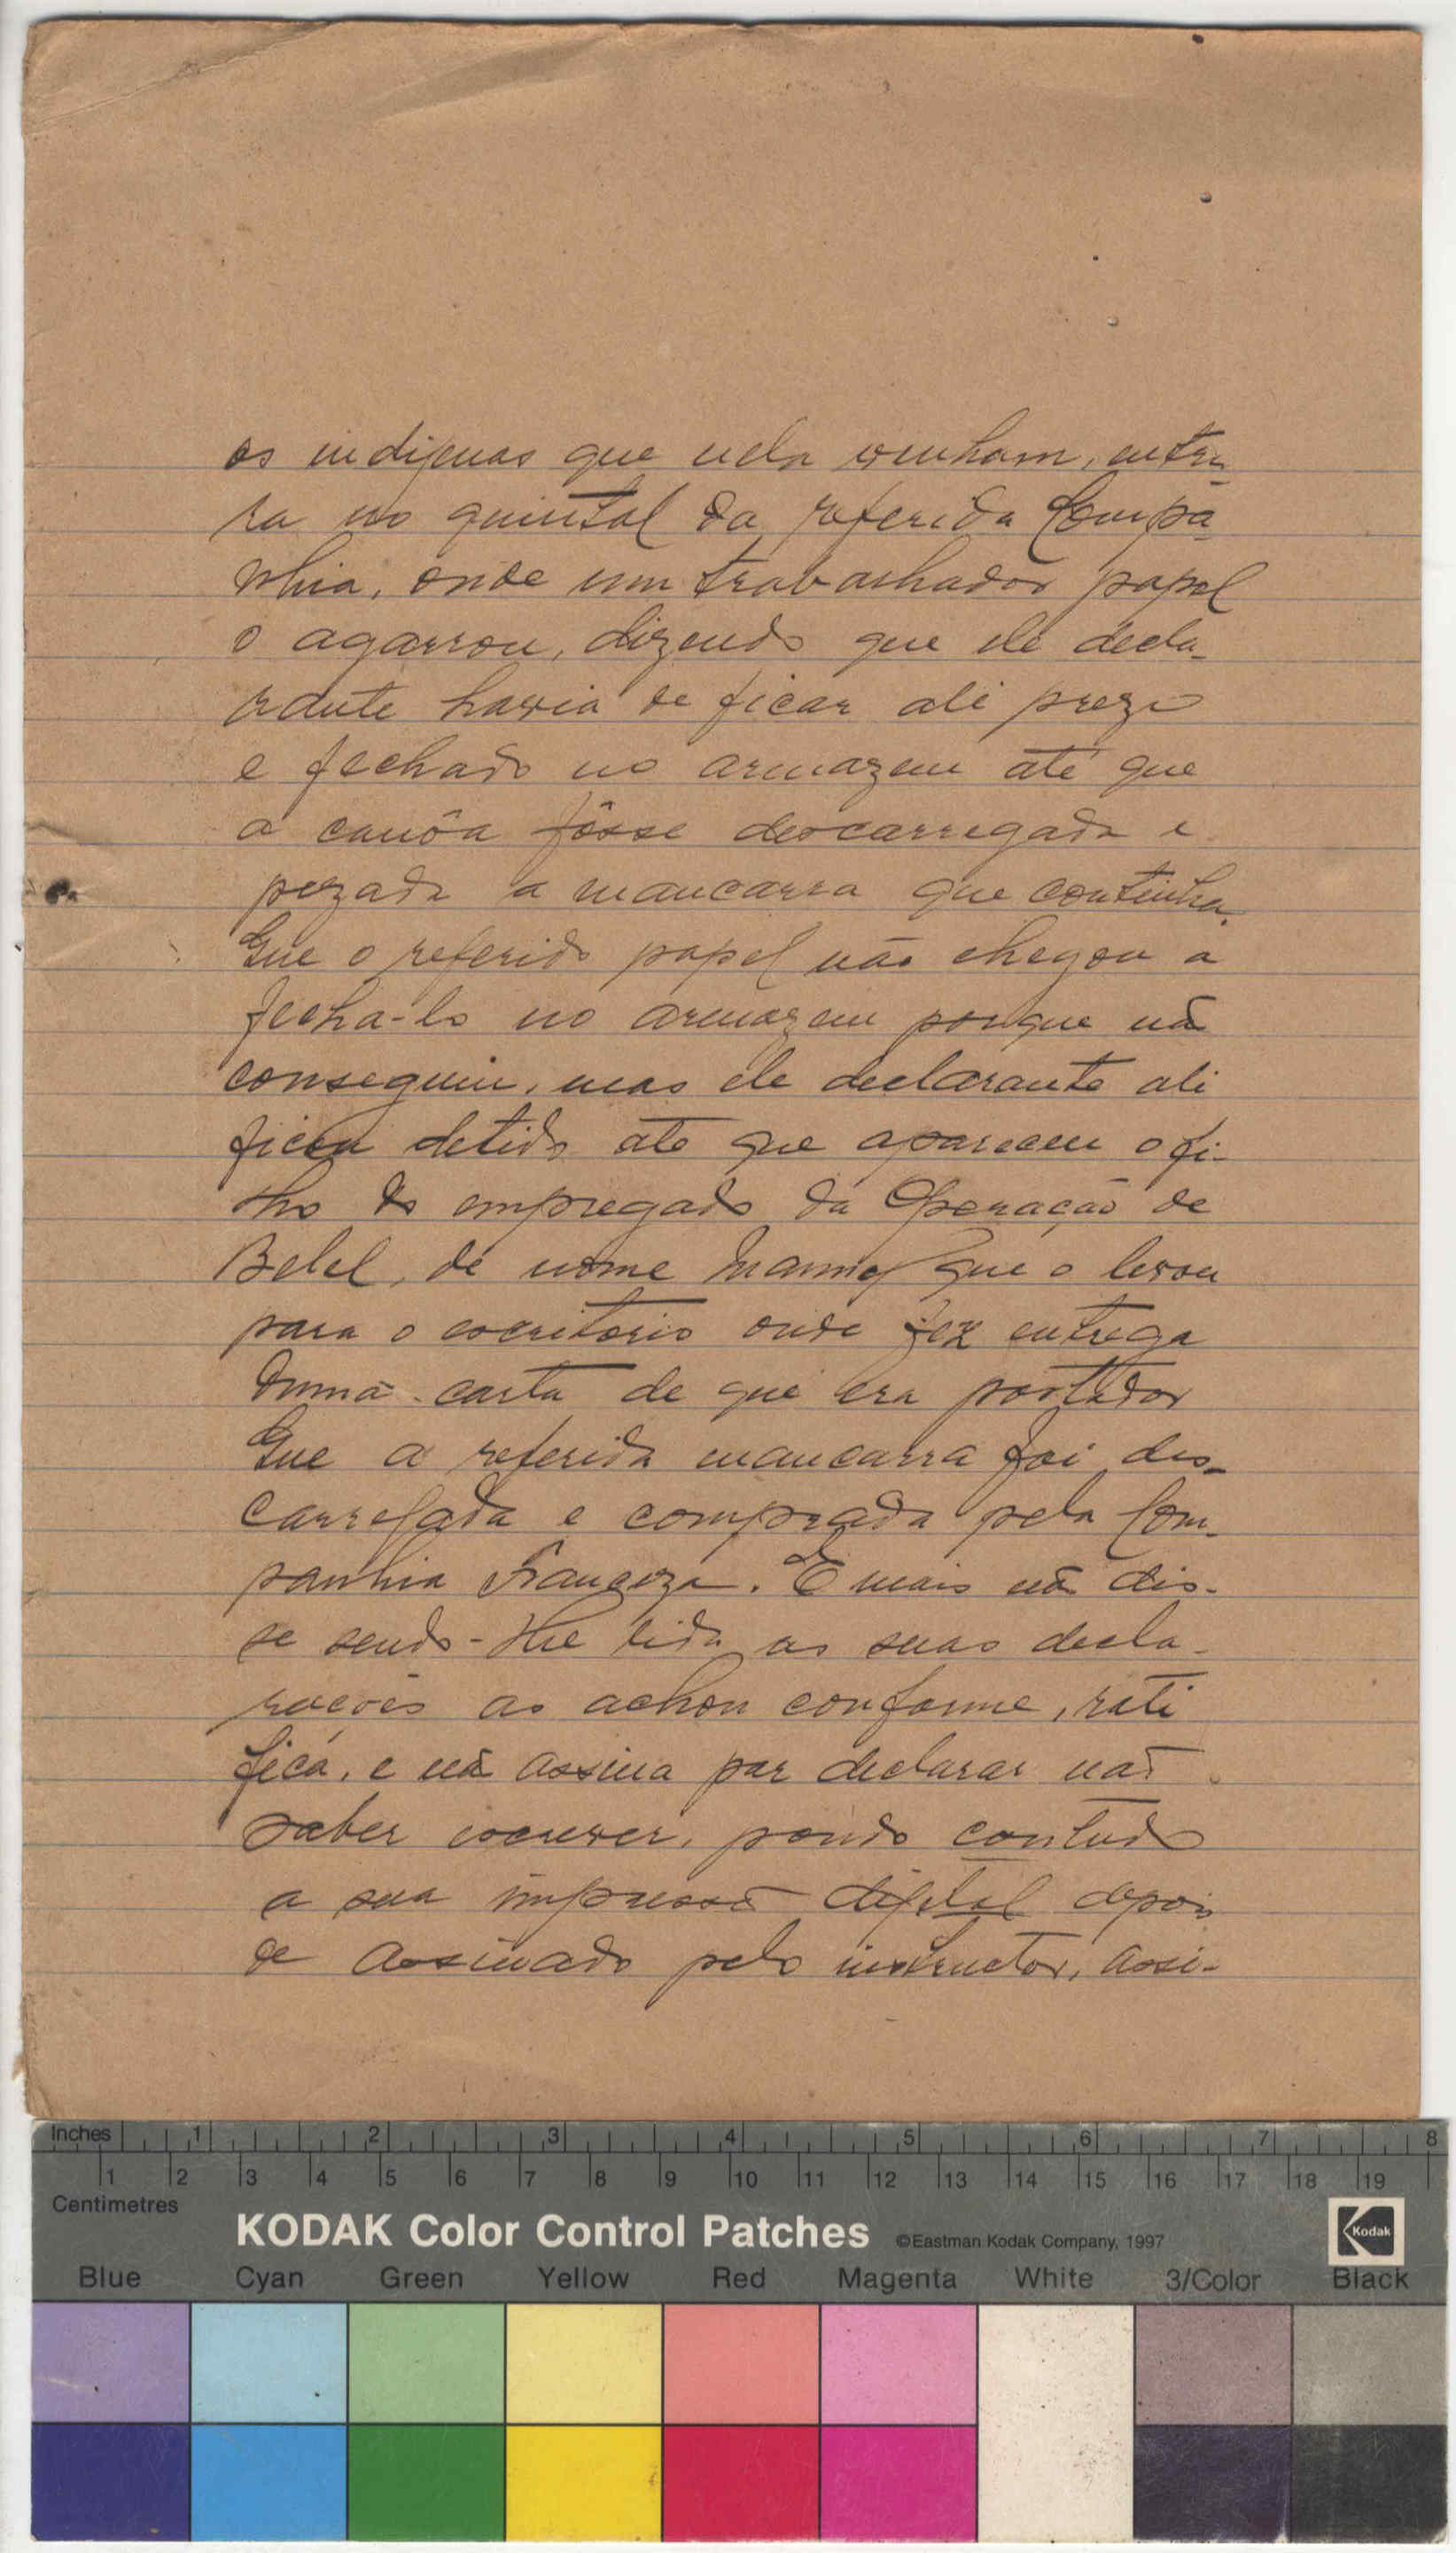 os indigenas que nela vinham, entra
ra no quintal da referida Compa
nhia, onde um trabalhador papel
o agarrou, dizendo que ele decla-
rante havia de ficar ali prezo
e fechado no armazem até que
a canôa fôsse descarregada e
pezada a mancarra que continha.
Que o referido papel não chegou a
fecha-lo no armazem porque não
conseguiu, mas ele declarante ali
ficou detido até que apareceu o fi-
lho do empregado da Operação de
Bolel, de nome que o levou
para o escritorio onde fez entrega
duma carta de que era portador
Que a referida mancarra foi des-
carregada e comprada pela Com-
panhia Franceza. E mais não dis-
se sendo-lhe lida as suas decla-
rações as achou conforme, rati
fica, e não assina por declarar não
saber escrever, pondo contudo
a sua impressão digital depois
de assinado pelo instructor, assi-
Inches 1 2 3 4 5 6 7 8
1 2 3 4 5 6 7 8 9 10 11 12 13 14 15 16 17 18 19
Centimetres
KODAK Color Control Patches ©Eastman Kodak Company, 1997 Kodak
Blue Cyan Green Yellow Red Magenta White 3/Color Black